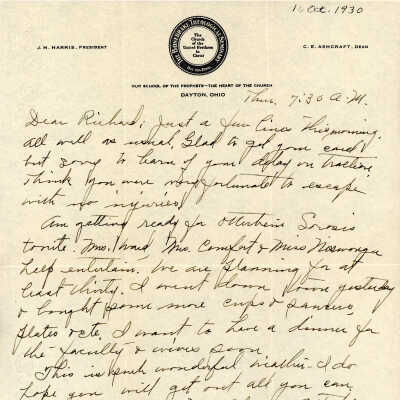 1 Oct. 1930
THE BONEBRAKE THEOLOGICAL SEMINARY
The Church
of the
United Brethren
in
Christ
J. H. HARRIS, PRESIDENT
C. E. ASHCRAFT, DEAN
OUR SCHOOL OF THE PROPHETS—THE HEART OF THE CHURCH
DAYTON, OHIO
Thur. 7:30 A.M.
Dear Richard; Just a few lines this morning.
All well as usual, Glad to get your card
but sorry to learn of your delay on traction.
Think you were very fortunate to escape
with no injuries.
Am getting ready for Otterbein Sorosis
tonite. Mrs. Ward, Mrs. Comfort & Miss
help entertain. We are planning for at
least thirty. I went down town yesterday
& bought some more cups & saucers,
plates & etc. I want to have a dinner for
the faculty & wives soon.
This is such wonderful weather. I do
hope you will get out all you can,